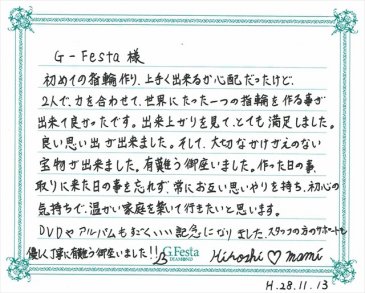 G-Festa 様
初めての指輪作り、上手く出来るか心配だったけど、
2人で、力を合わせて、世界にたった一つの指輪を作る事が
出来て良かったです。出来上がりを見て、とても満足しました。
良い思い出が出来ました。そして、大切なかけがえのない
宝物が出来ました。有難う御座いました。作った日の事、
取りに来た日の事を忘れず、常にお互い思いやりを持ち、初心の
気持ちで、温かい家庭を築いて行きたいと思います。
DVDやアルバムもすごくいい記念になりました、スタッフの方のサポートも
優しく丁寧に有難う御座いました!!
G.Festa
DIAMOND
Hiroshi ♡ mami
H.28.11.13